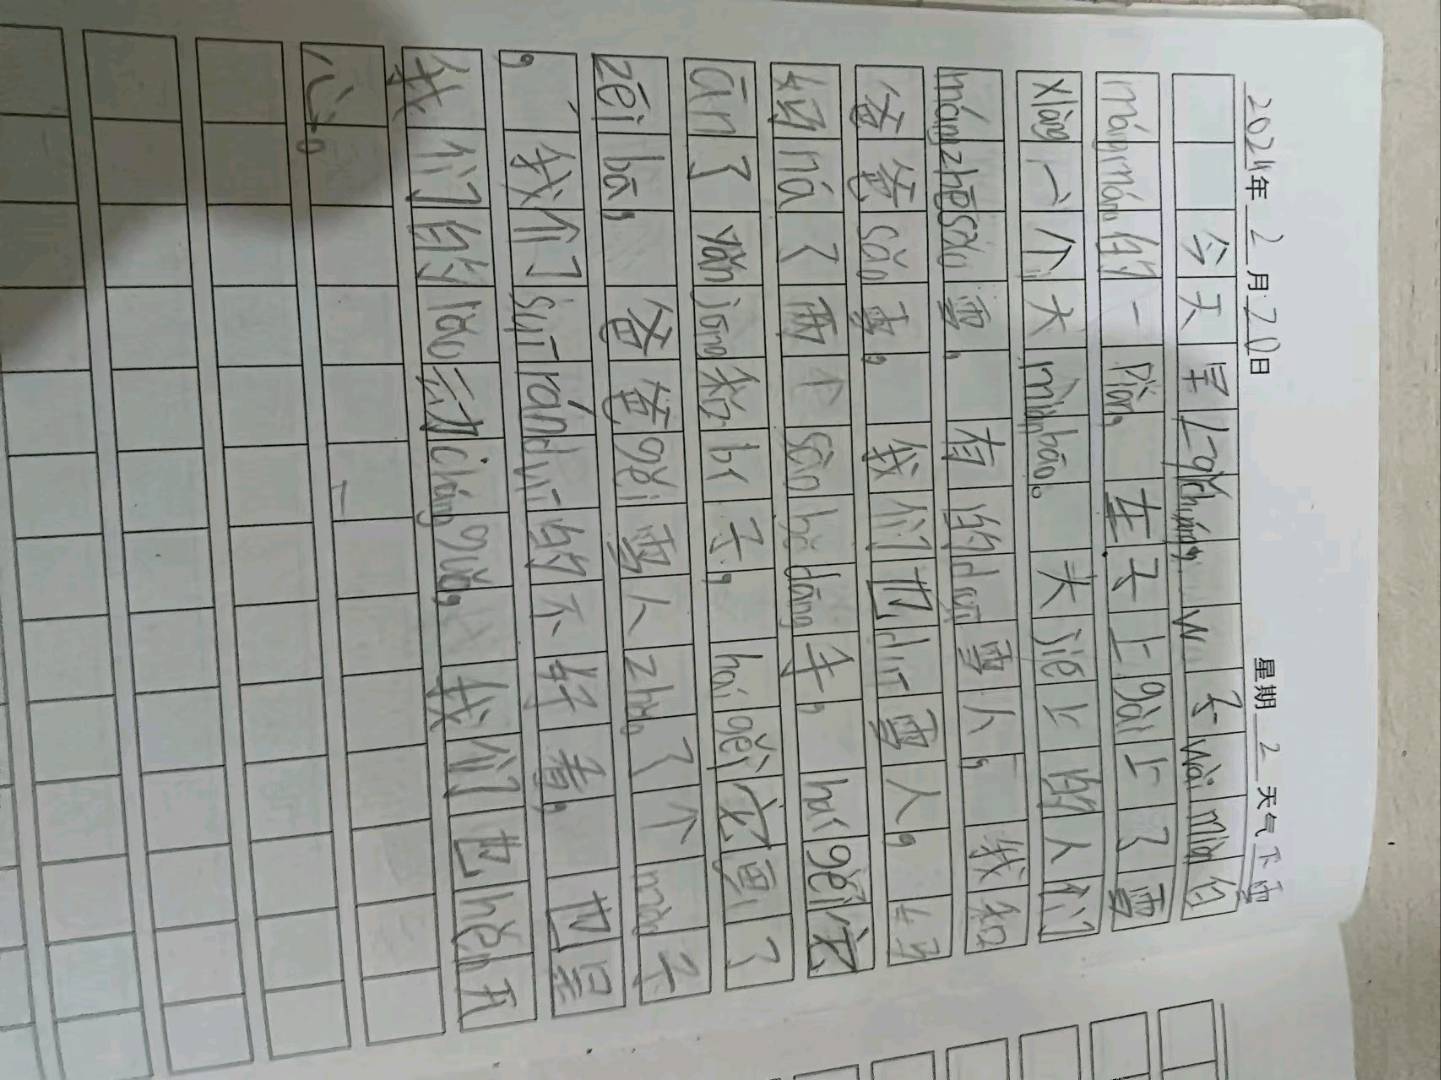 2024年2月20日 星期2 天气下雪
今天呈7gchuáng w子wài miàn白
mángmáng的一piàn,在天上gài上了雪
xiàng一个大miànbāo。大jiē上的人们
mángzhēsǎo雪,有的duī雪人,我和
爸爸sǎo雪,我们也duī雪人,妈
妈ná了两个sāohēdāng手,hái gěi它
ān了yǎn jīng和bí子,hái gěi它画了
zěi bā,爸爸gěi雪人zhǎo了个mào子
,我们suī rán duī的不好看,也是
我们的láo动chéng guǒ,我们也hěn开
心。